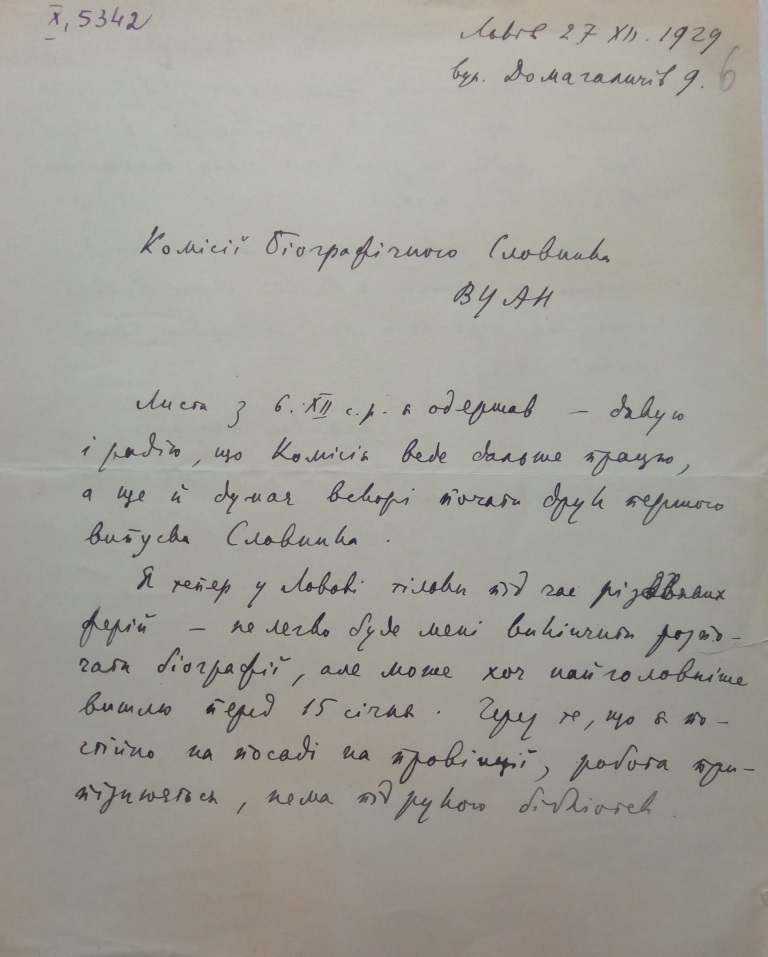 X, 5342
Львів 27 XII. 1929
вул. Домагаличів 9. 6
Комісії Біографічного Словника
ВУАН
Листа з 6. XII с. р. я одержав — дякую
і радію, що Комісія веде дальше працю,
а ще й думає вскорі почати друк першого
випуска Словника.
Я тепер у Львові тільки під час різдвяних
ферій — не легко буде мені викінчити розпо-
чаті біографії, але може хоч найголовніше
вишлю перед 15 січня. Через те, що я по-
стійно на посаді на провінції, робота при-
пізнюється, нема під рукою бібліотек